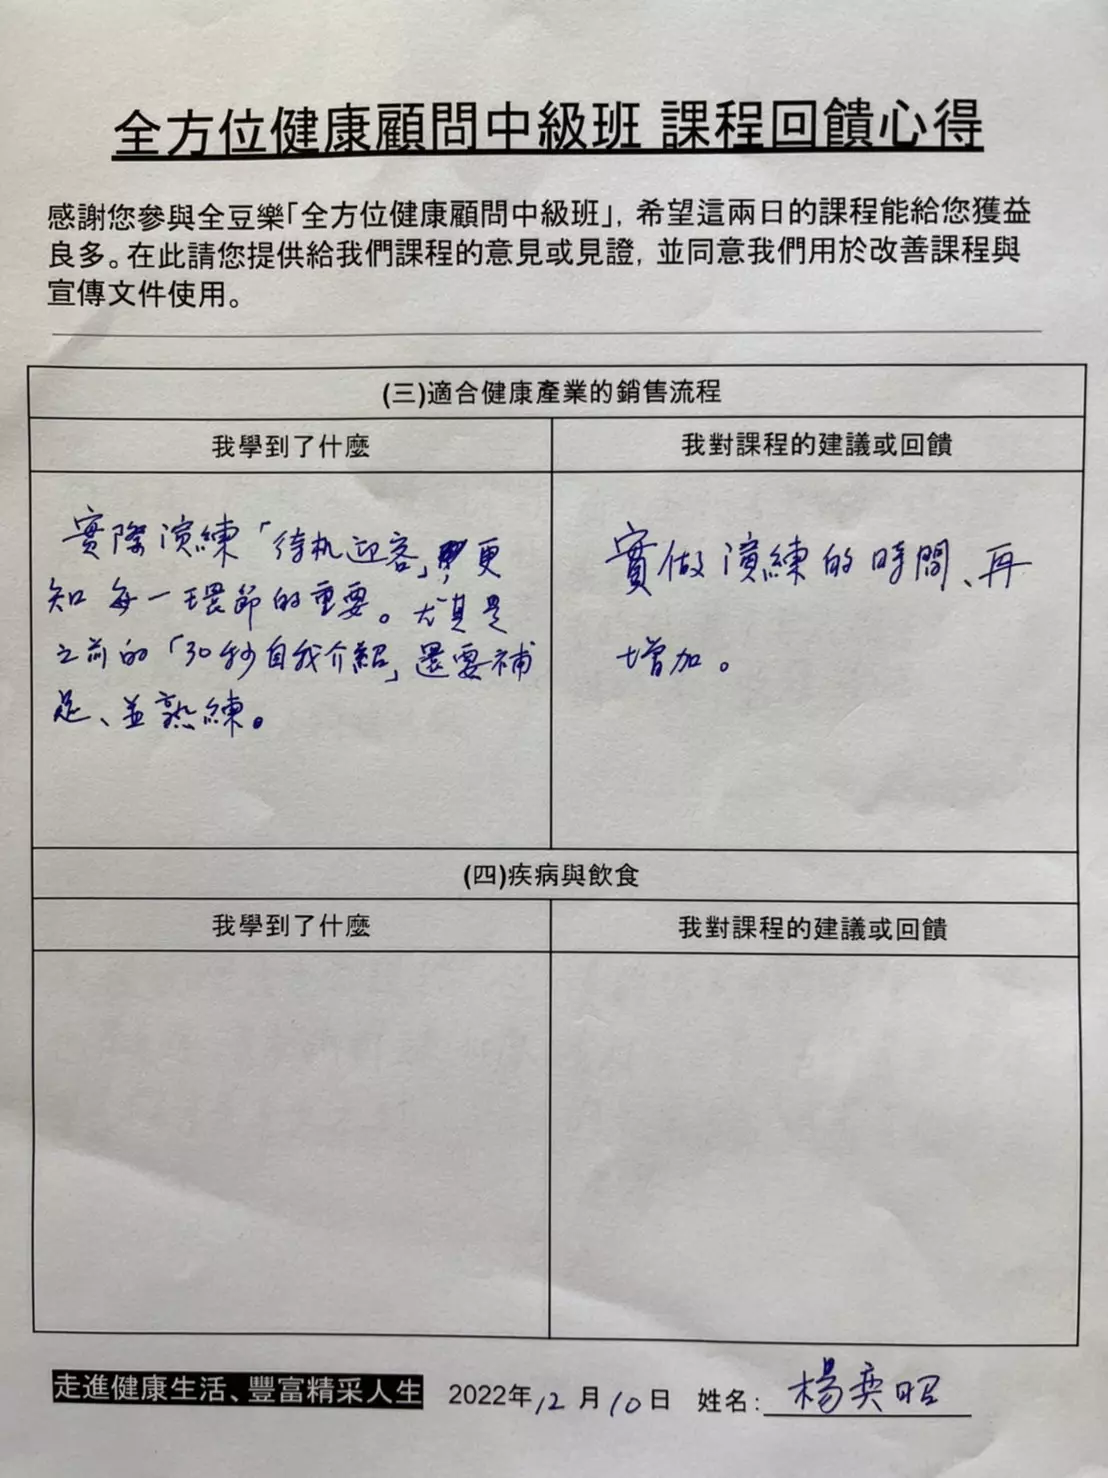 全方位健康顧問中級班 課程回饋心得
感謝您參與全豆樂「全方位健康顧問中級班」，希望這兩日的課程能給您獲益
良多。在此請您提供給我們課程的意見或見證，並同意我們用於改善課程與
宣傳文件使用。
(三)適合健康產業的銷售流程
我學到了什麼
我對課程的建議或回饋
實際演練「待机迎客」，更
知每一環節的重要。尤其是
之前的「30秒自我介紹」還要補
足、並熟練。
實做演練的時間、再
增加。
(四)疾病與飲食
我學到了什麼
我對課程的建議或回饋
走進健康生活、豐富精采人生 2022年12月10日 姓名：楊奕昭